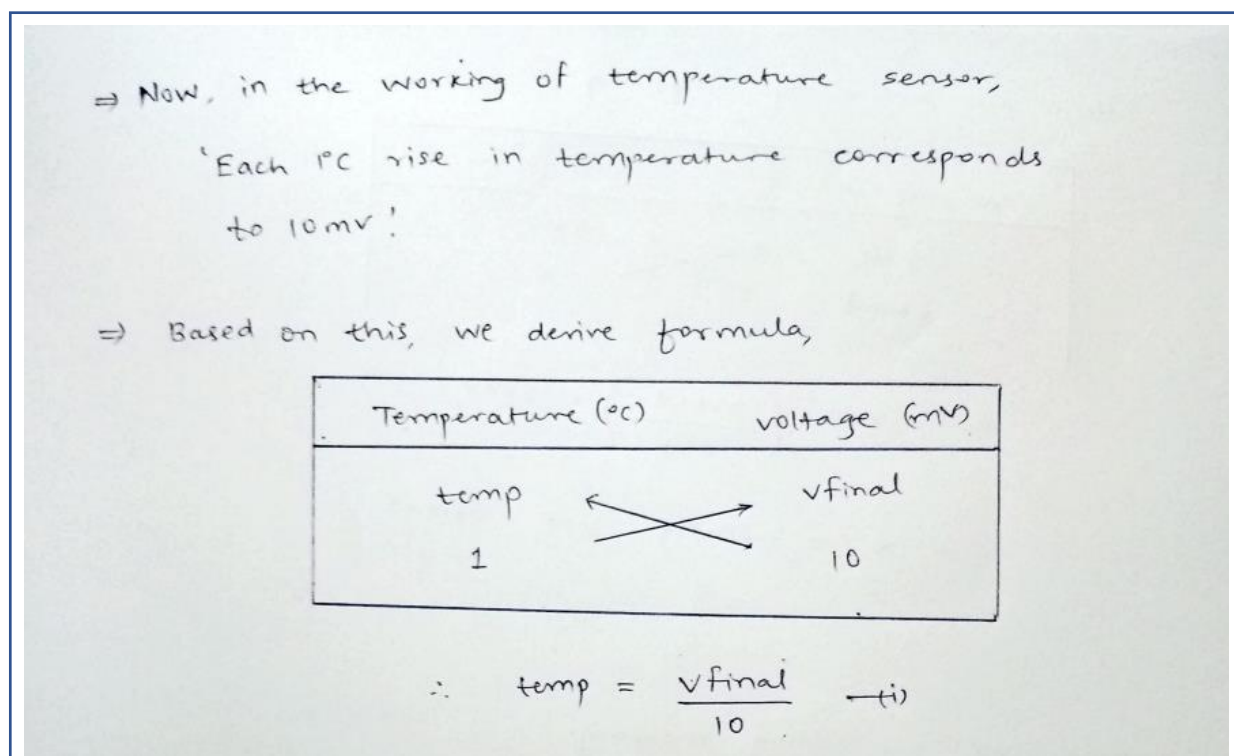 ⇒ Now, in the working of temperature sensor,
'Each 1°C rise in temperature corresponds
to 10mv'.
⇒ Based on this, we derive formula,
Temperature (°C) voltage (mv)
temp vfinal
1 10
∴ temp = vfinal / 10 —(i)